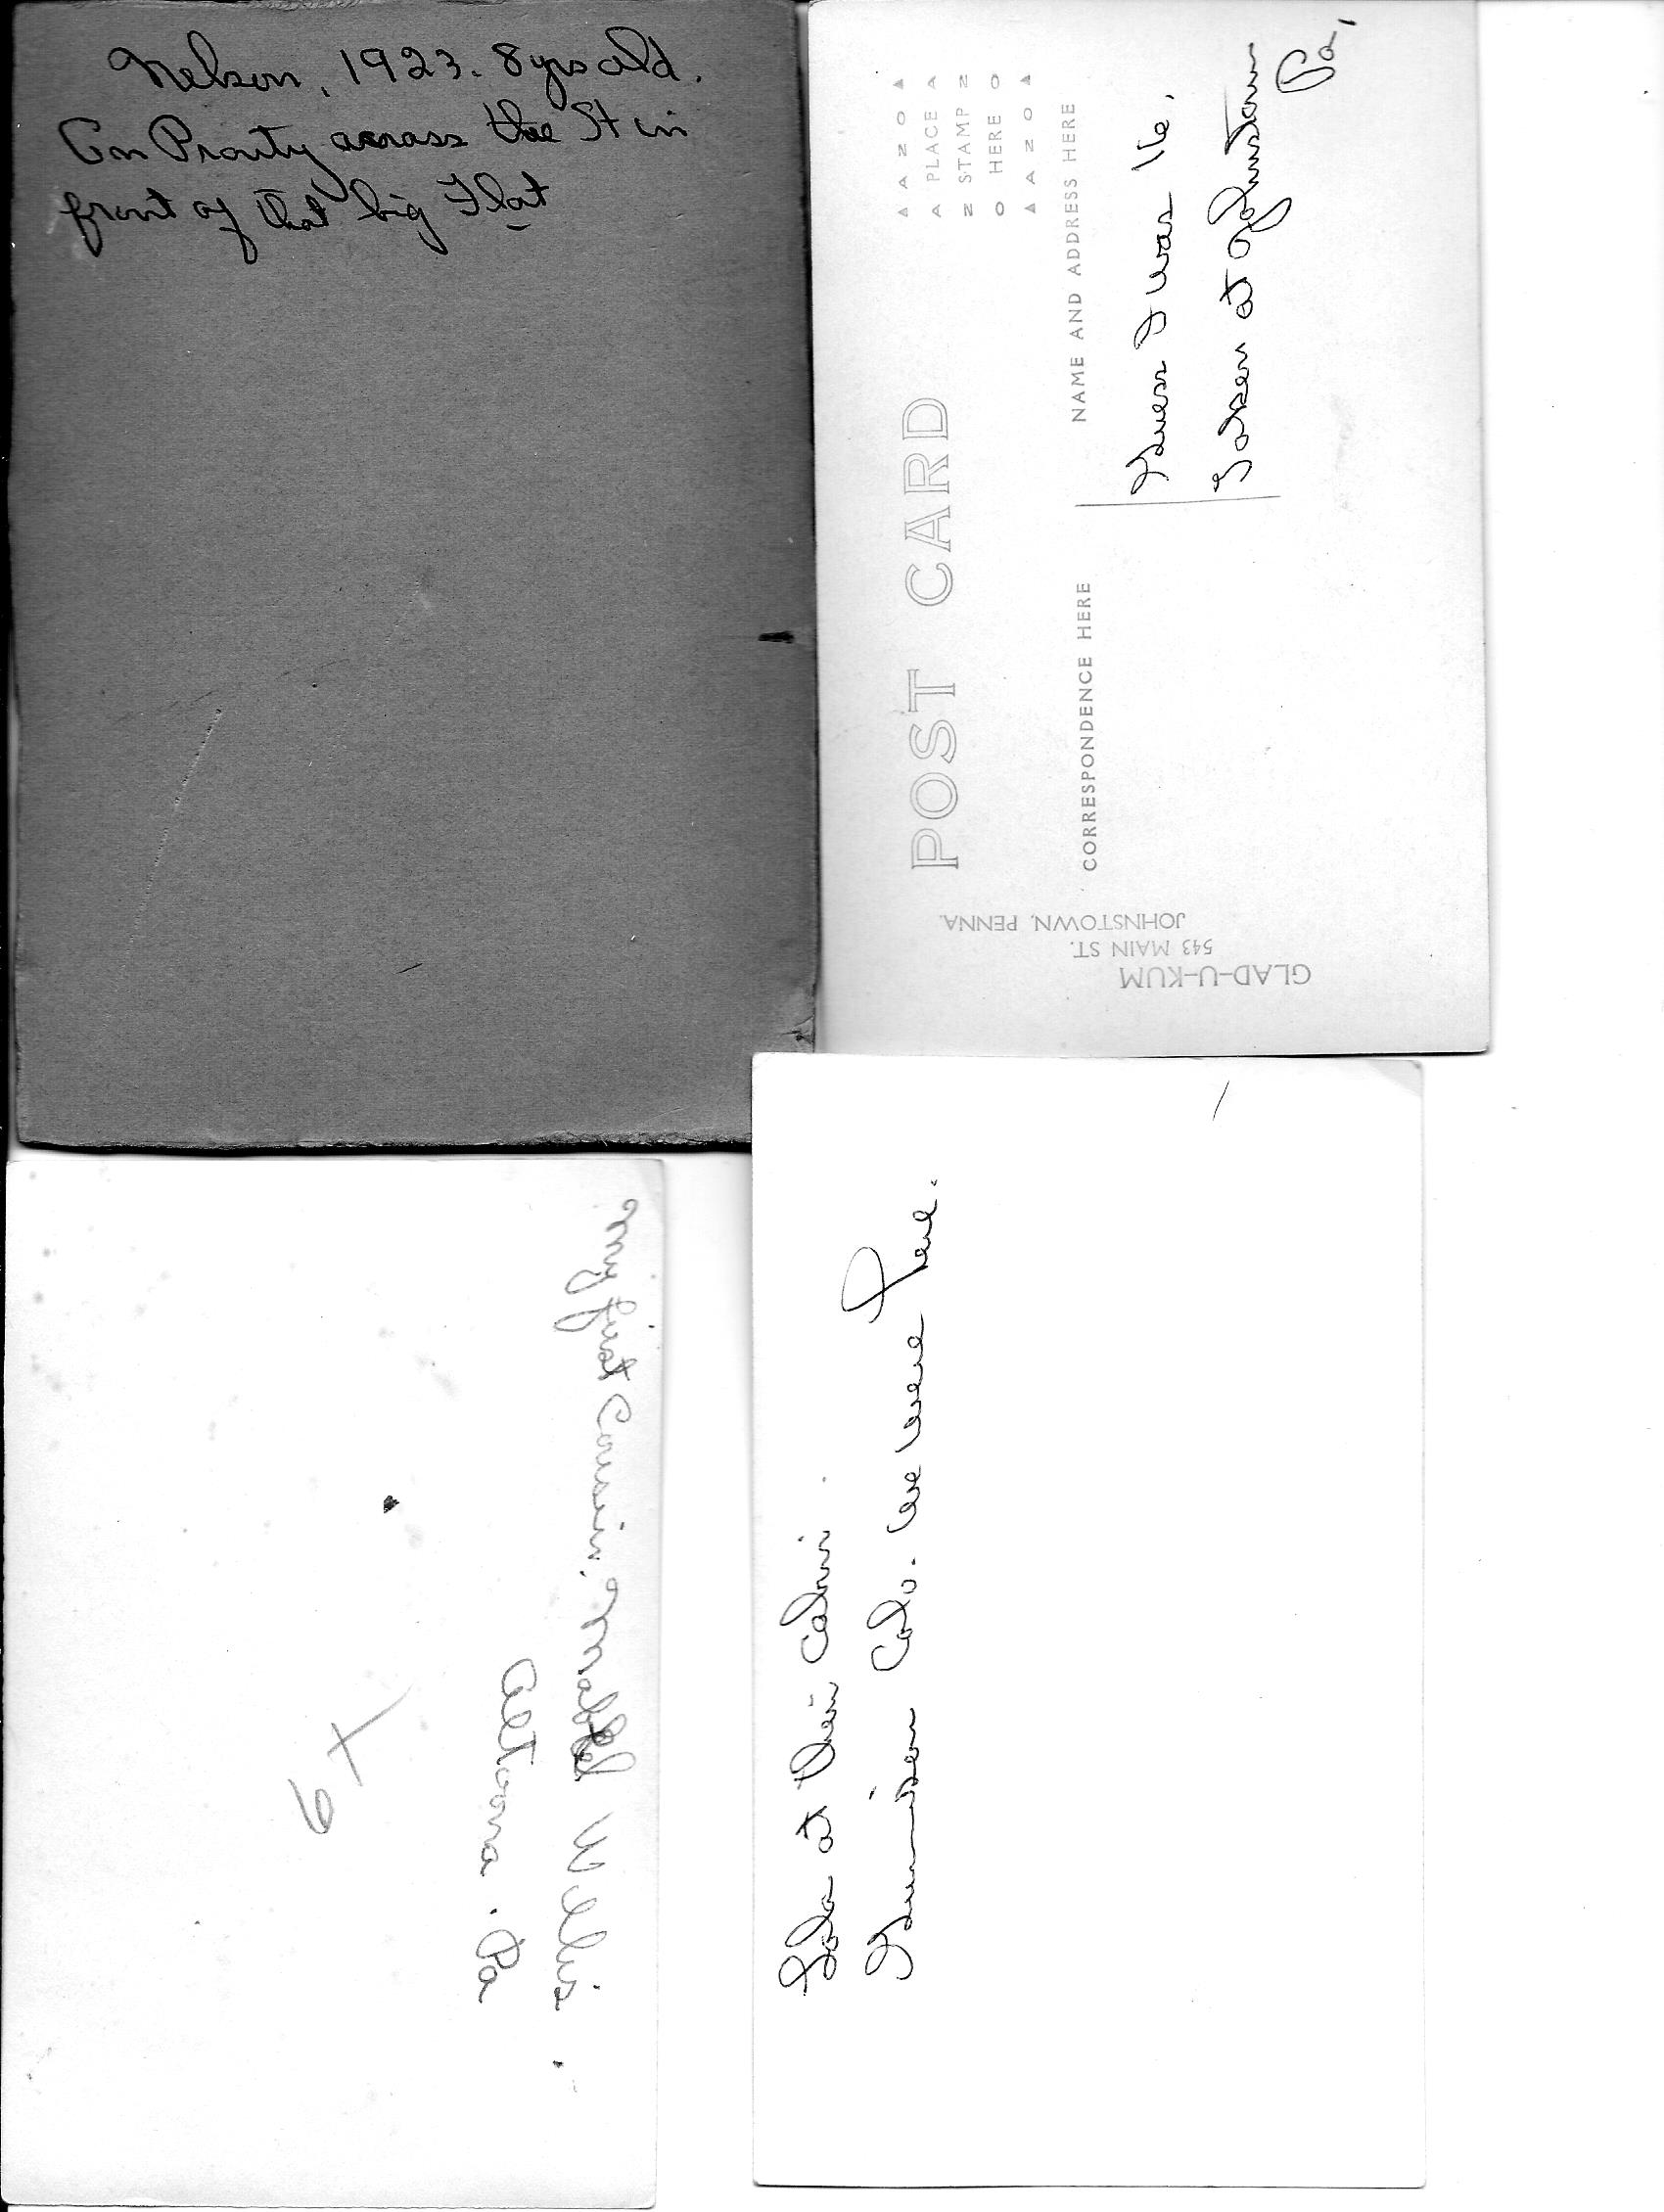 Nelson, 1923. 8 yrs old.
On Prouty across the St in
front of that big Flat
POST CARD
▲ A Z O ▲
A PLACE A
Z STAMP Z
O HERE O
▲ A Z O ▲
CORRESPONDENCE HERE
NAME AND ADDRESS HERE
Guess I was 16.
Taken at Johnstown
Pa,
GLAD-U-KUM
543 MAIN ST.
JOHNSTOWN, PENNA.
my first Cousin, Mabel Willis.
Altoona. Pa
Lola at their Cabin.
Gunnison Colo. we were there.